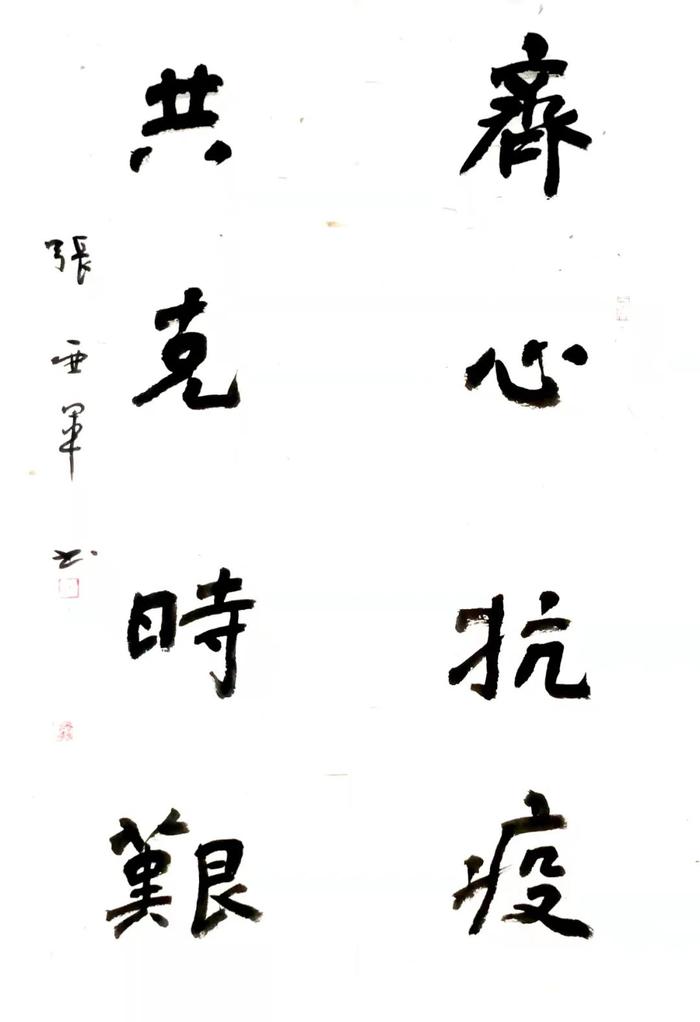 齊心抗疫
共克時艱
張亞軍书